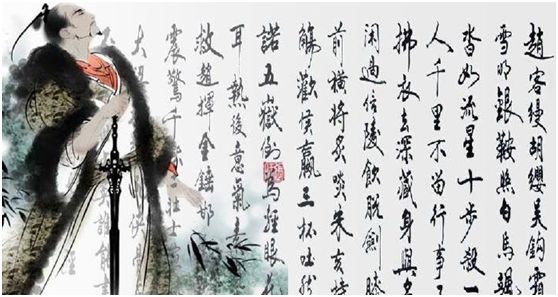 趙客縵胡纓吳鈎霜
雪明銀鞍照白馬颯
沓如流星十步殺一
人千里不留行事了
拂衣去深藏身與
閑過信陵飲脫劍膝
前橫將炙啖朱亥持
觴勸侯嬴三杯吐然
諾五嶽倒爲輕眼花
耳熱後意氣素
救趙揮金錘邯
震驚千秋二壯士
大梁
誰能書